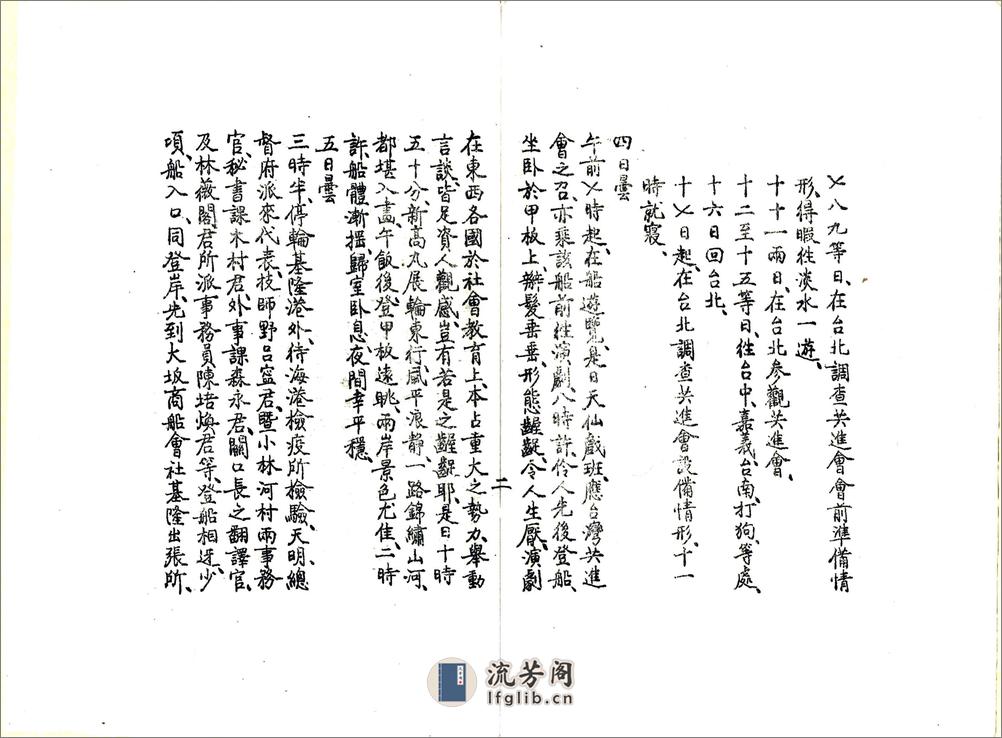 〤八九等日、在台北調查共進會會前準備情
形、得暇往淡水一遊、
十十一兩日、在台北參觀共進會、
十二至十五等日、往台中、嘉義、台南、打狗、等處、
十六日回台北、
十〤日起在台北調查共進會設備情形、十一
時就寢、
四日曇
午前〤時起、在船遊覽、是日天仙戲班、應台灣共進
會之召、亦乘該船前往演劇、八時許伶人先後登船、
坐卧於甲板上、辮髮垂垂、形態齷齪、令人生厭、演劇
二
在東西各國於社會教育上、本占重大之勢力、舉動
言談、皆足資人觀感、豈有若是之齷齪耶、是日十時
五十分、新高丸展輪東行、風平浪靜、一路錦繡山河、
都堪入畫、午飯後、登甲板遠眺、兩岸景色尤佳、二時
許、船體漸搖、歸室卧息、夜間幸平穩、
五日曇
三時半、停輪基隆港外、待海港檢疫所檢驗、天明、總
督府派來代表、技師野呂寧君、暨小林河村兩事務
官、秘書課木村君、外事課森永君、關口長之翻譯官、
及林薇閣君所派事務員陳培煥君等、登船相迓、少
頃、船入口、同登岸、先到大坂商船會社基隆出張所、
流芳阁
lfglib.cn